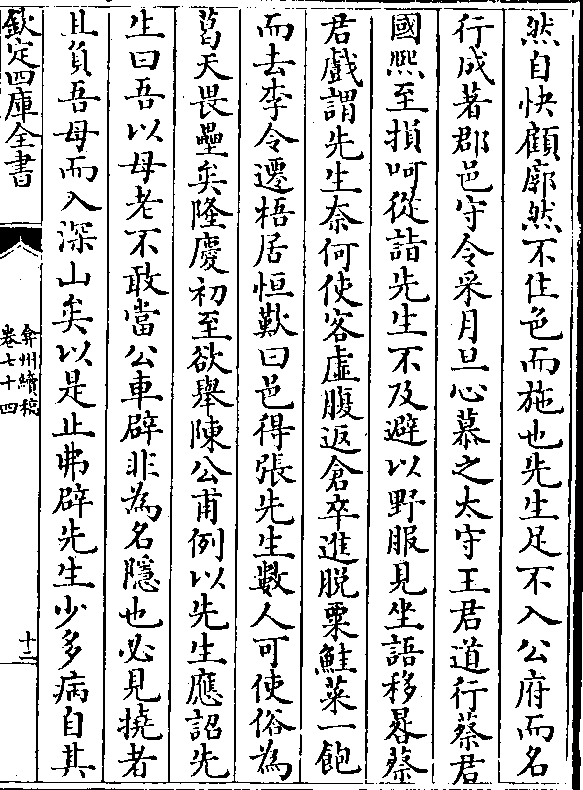 然自快顧廓然不住色而施也先生足不入公府而名
行成著郡邑守令采月旦心慕之太守王君道行蔡君
國熙至損呵從詣先生不及避以野服見坐語移晷蔡
君戲謂先生奈何使客虛腹返倉卒進脫粟鮭菜一飽
而去李令遷梧居恒歎曰邑得張先生數人可使俗為
葛天畏壘矣隆慶初至欲舉陳公甫例以先生應詔先
生曰吾以母老不敢當公車辟非為名隱也必見撓者
且負吾母而入深山矣以是止弗辟先生少多病自其
欽定四庫全書
弇州續稿
卷七十四
十二